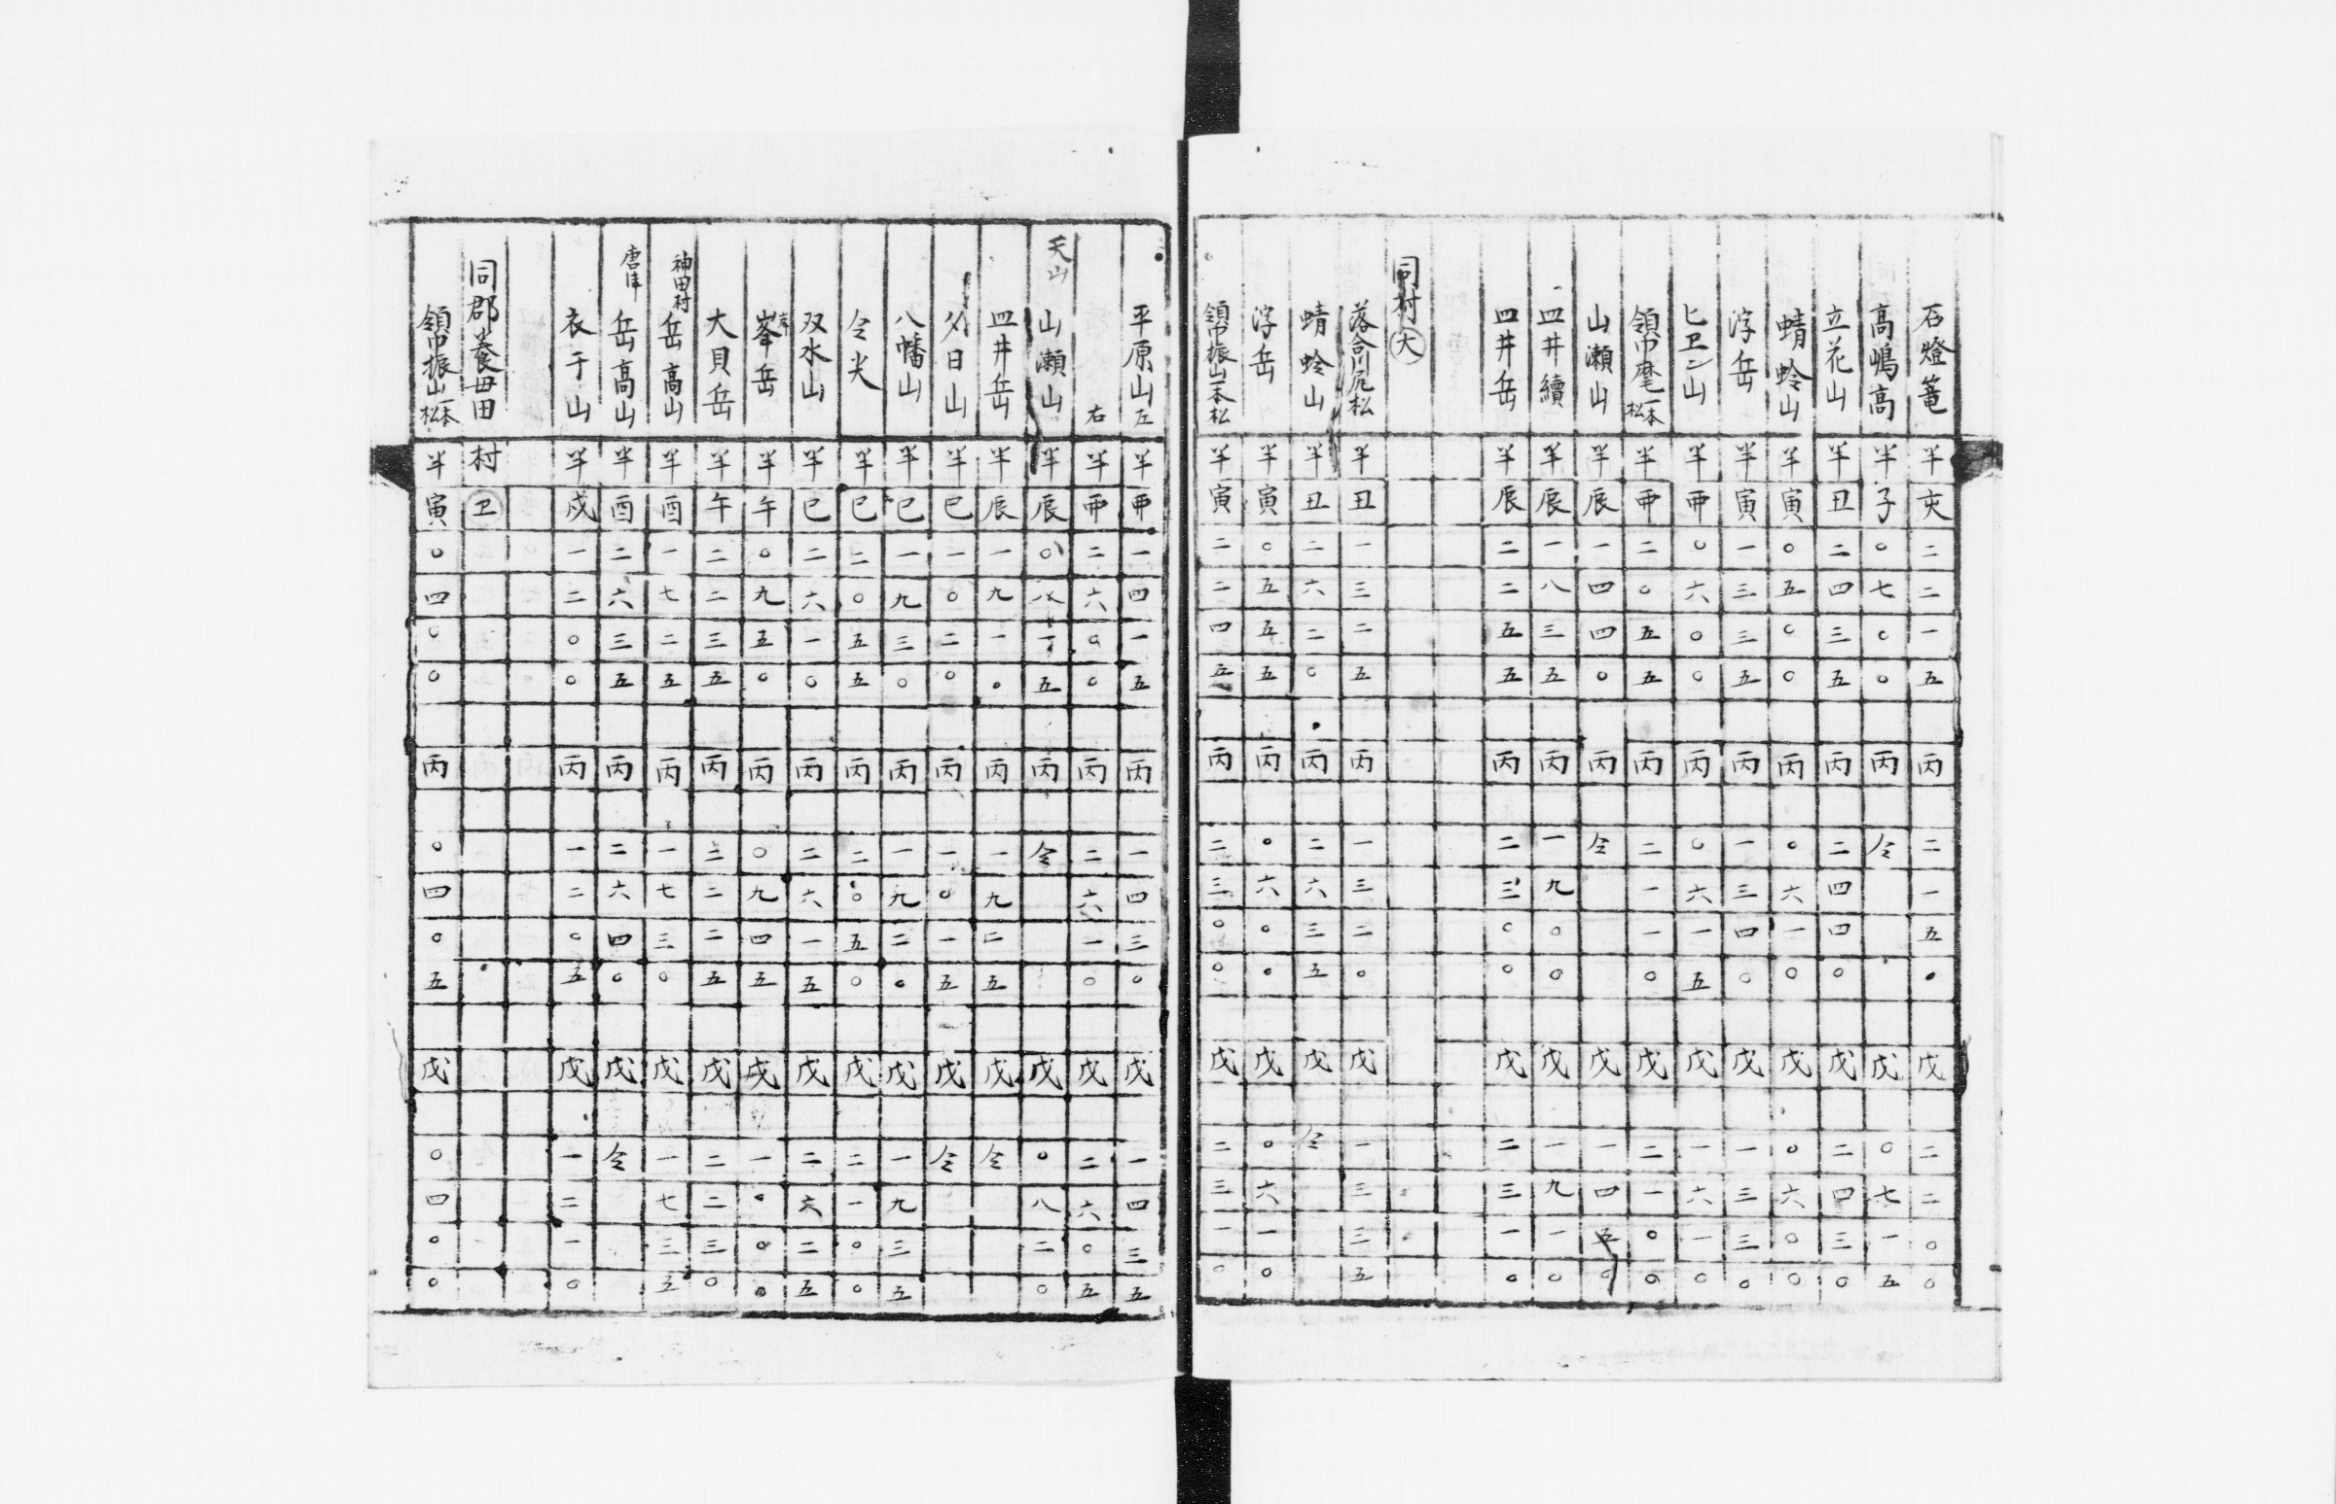 石燈篭 半 亥 二 二 一 五 丙 二 一 五 〇 戊 二 二 〇 〇
髙嶋髙 半 子 〇 七 〇 〇 丙 仝 戊 〇 七 一 五
立花山 半 丑 二 四 三 五 丙 二 四 四 〇 戊 二 四 三 〇
蜻蛉山 半 寅 〇 五 〇 〇 丙 〇 六 一 〇 戊 〇 六 〇 〇
浮岳 半 寅 一 三 三 五 丙 一 三 四 〇 戊 一 三 三 〇
山 半 戼 〇 六 〇 〇 丙 〇 六 一 五 戊 一 六 一 〇
領巾麾 一本松 半 戼 二 〇 五 五 丙 二 一 一 〇 戊 二 一 〇 〇
山瀬山 半 辰 一 四 四 〇 丙 仝 戊 一 四 五 〇
皿井續 半 辰 一 八 三 五 丙 一 九 〇 〇 戊 一 九 一 〇
皿井岳 半 辰 二 二 五 五 丙 二 三 〇 〇 戊 二 三 一 〇
同村 大
落合川尻松 半 丑 一 三 二 五 丙 一 三 二 〇 戊 一 三 三 五
蜻蛉山 半 丑 二 六 二 〇 丙 二 六 三 五 戊 仝
浮岳 半 寅 〇 五 五 五 丙 〇 六 〇 〇 戊 〇 六 一 〇
領巾振山一本松 半 寅 二 二 四 五 丙 二 三 〇 〇 戊 二 三 一 〇
平原山左 半 戼 一 四 一 五 丙 一 四 三 〇 戊 一 四 三 五
右 半 戼 二 六 〇 〇 丙 二 六 一 〇 戊 二 六 〇 五
天山 山瀬山 半 辰 〇 八 一 五 丙 仝 戊 〇 八 二 〇
皿井岳 半 辰 一 九 一 〇 丙 一 九 二 五 戊 仝
夕日山 半 巳 一 〇 二 〇 丙 一 〇 一 五 戊 仝
八幡山 半 巳 一 九 三 〇 丙 一 九 二 〇 戊 一 九 三 五
仝尖 半 巳 二 〇 五 五 丙 二 〇 五 〇 戊 二 一 〇 〇
双水山 半 巳 二 六 一 〇 丙 二 六 一 五 戊 二 六 二 五
峯岳 半 午 〇 九 五 〇 丙 〇 九 四 五 戊 一 〇 〇 〇
大貝岳 半 午 二 二 三 五 丙 二 二 二 五 戊 二 二 三 〇
神田村 岳髙山 半 酉 一 七 二 五 丙 一 七 三 〇 戊 一 七 三 五
唐津 岳髙山 半 酉 二 六 三 五 丙 二 六 四 〇 戊 仝
衣干山 半 戌 一 二 〇 〇 丙 一 二 〇 五 戊 一 二 一 〇
同郡養母田村
領巾振山一本松 半 寅 〇 四 〇 〇 丙 〇 四 〇 五 戊 〇 四 〇 〇